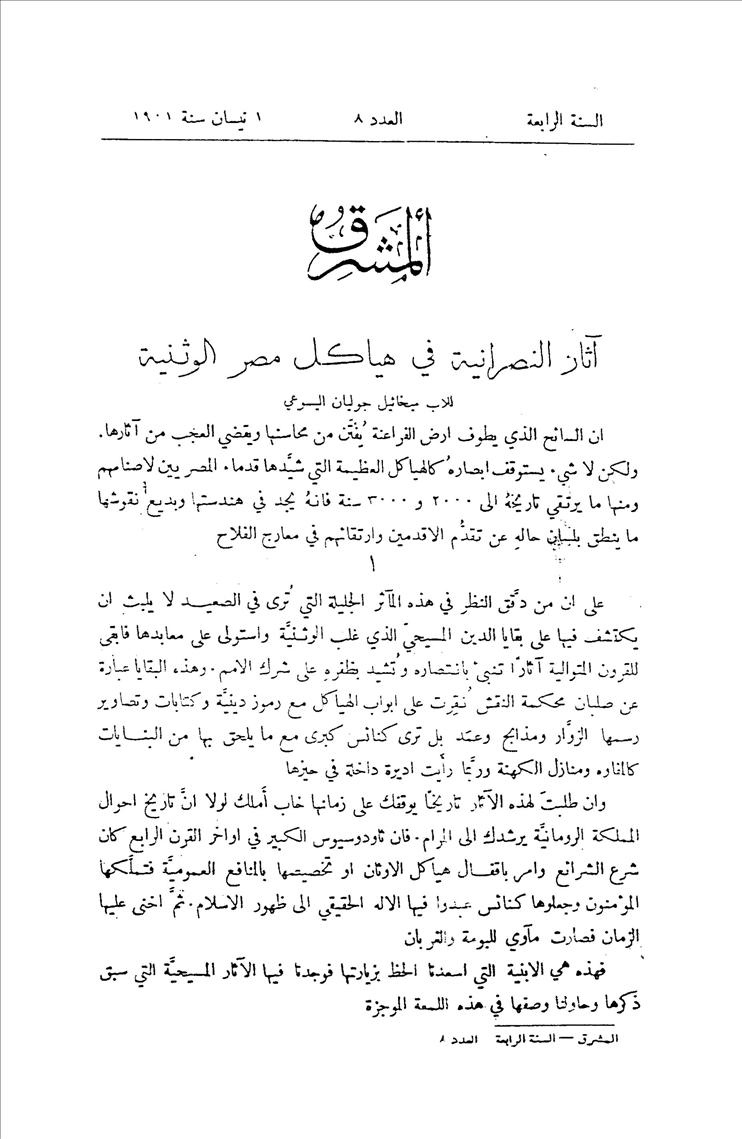 السنة الرابعة العدد ٨ ١ نيسان سنة ١٩٠١
المشرق
آثار النصرانية في هياكل مصر الوثنية
للاب ميخائيل جوليان اليسوعي
ان السائح الذي يطوف ارض الفراعنة يُفْتَن من محاسنها ويقضي العجب من آثارها.
ولكن لا شيء يستوقف ابصارهُ كالهياكل العظيمة التي شيَّدها قدماء المصريين لاصنامهم
ومنها ما يرتقي تاريخهُ الى ٢٠٠٠ و ٣٠٠٠ سنة فانهُ يجد في هندستها وبديع نقوشها
ما ينطق بلسان حالهِ عن تقدُّم الاقدمين وارتقائهم في معارج الفلاح
١
على ان من دقَّق النظر في هذه المآثر الجليلة التي تُرى في الصعيد لا يلبث ان
يكتشف فيها على بقايا الدين المسيحيّ الذي غلب الوثنيَّة واستولى على معابدها فابقى
للقرون المتوالية آثارًا تنبئ بانتصاره وتُشيد بظفرهِ على شرك الامم. وهذه البقايا عبارة
عن صلبان محكمة النقش نُقِرت على ابواب الهياكل مع رموز دينيَّة وكتابات وتصاوير
رسمها الزوَّار ومذابح وعمَد بل ترى كنائس كبرى مع ما يلحق بها من البنايات
كالمناره ومنازل الكهنة وربَّما رأيت اديرة داخلة في حيزها
وان طلبتَ لهذه الآثار تاريخًا يوقفك على زمانها خاب أملك لولا انَّ تاريخ احوال
المملكة الرومانيَّة يرشدك الى المرام. فان ثاودوسيوس الكبير في اواخر القرن الرابع كان
شرع الشرائع وامر باقفال هياكل الاوثان او تخصيصها بالمنافع العموميَّة فتملَّكها
المؤمنون وجعلوها كنائس عبدوا فيها الاله الحقيقي الى ظهور الاسلام. ثمَّ اخنى عليها
الزمان فصارت مآوي للبومة والغربان
فهذه هي الابنية التي اسعدنا الحظ بزيارتها فوجدنا فيها الآثار المسيحيَّة التي سبق
ذكرها وحاولنا وصفها في هذه اللمعة الموجزة
المشرق — السنة الرابعة العدد ٨